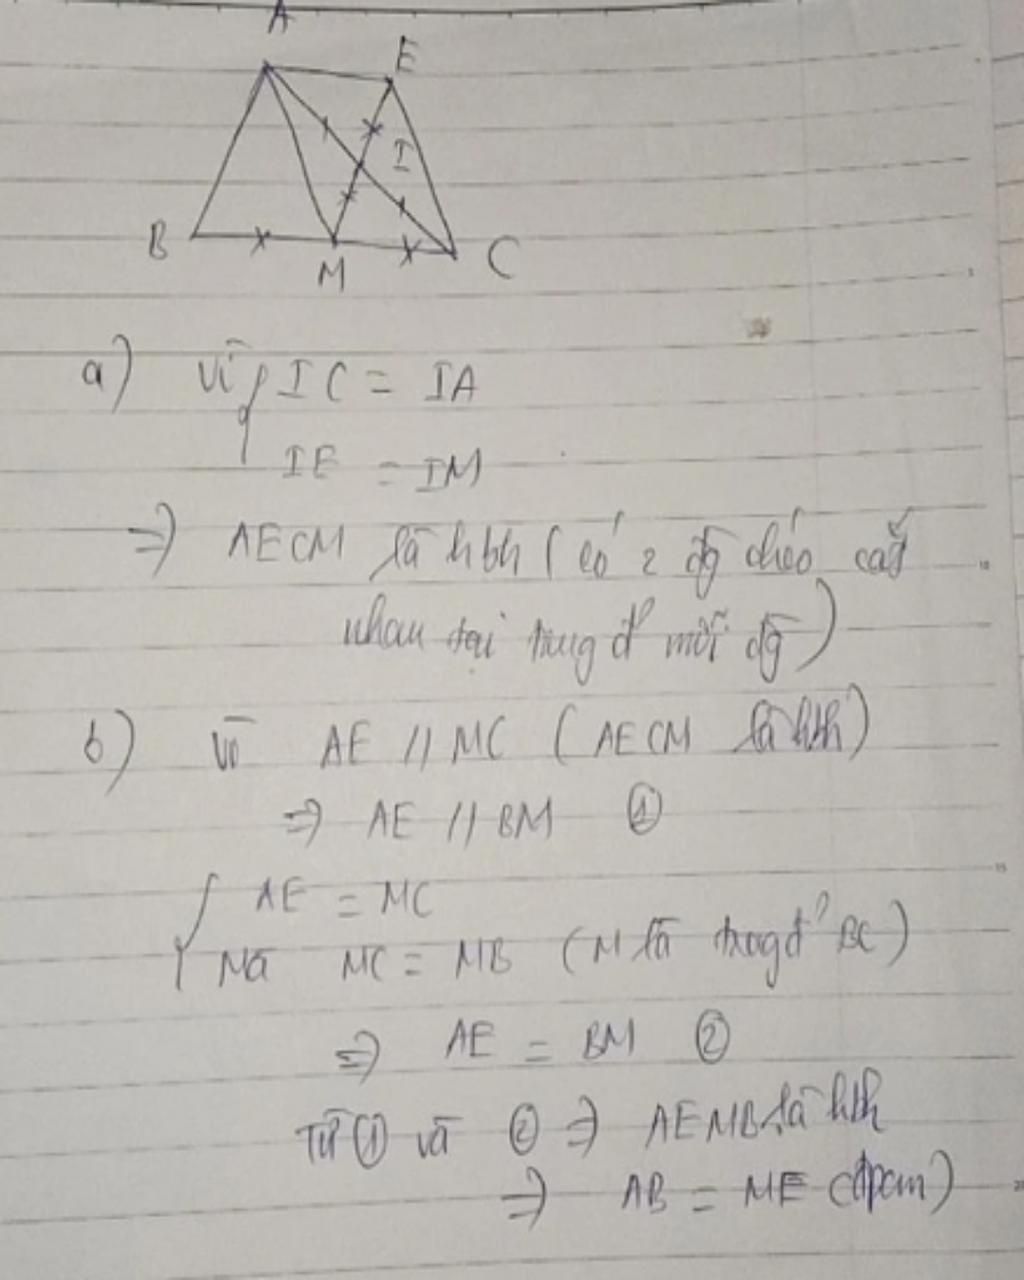 A
E
I
B
M
C
a) Vì { IC = IA
IE = IM
=> AECM là hbh ( có 2 đg chéo cắt
nhau tại trug đ' mỗi đg )
b) Vì AE // MC ( AECM là hbh )
=> AE // BM ①
{ AE = MC
Mà MC = MB ( M là trug đ' BC )
=> AE = BM ②
Từ ① và ② => AEMB là hbh
=> AB = ME (đpcm)